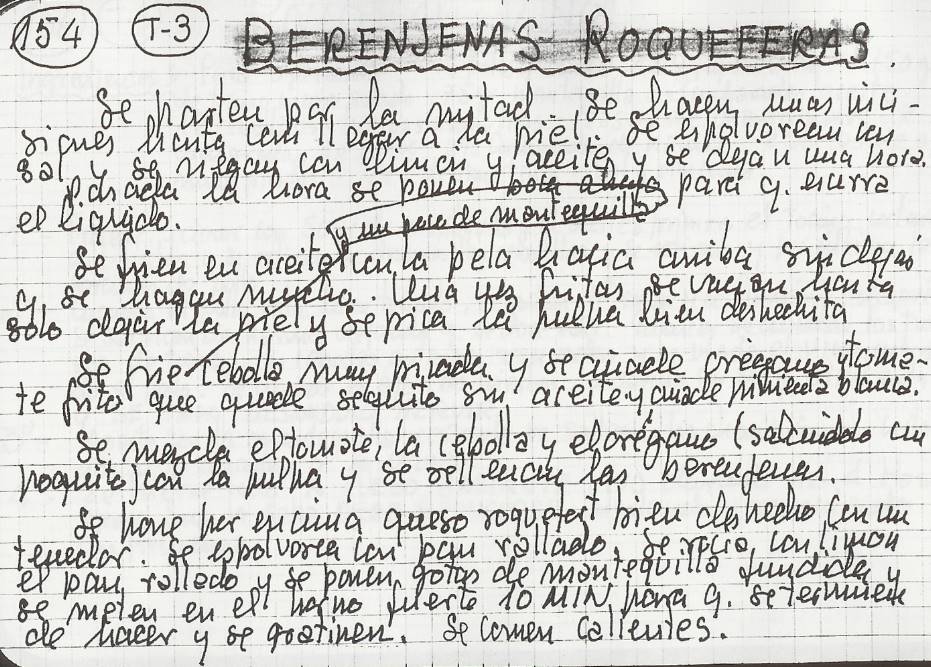 154 T-3 BERENJENAS ROQUEFERAS.
Se parten por la mitad. Se hacen unas inci-
siones hasta casi llegar a la piel. Se espolvorean con
sal y se riegan con limón y aceite y se dejan una hora.
Pasada la hora se ponen boca abajo para q. escurra
el líquido.
y un poco de mantequilla
Se frien en aceite con la pela hacia arriba sin dejar
q. se hagan mucho. Una vez fritas se vacian hasta
solo dejar la piel y se pica la pulpa bien deshechita
Se frie cebolla muy picada y se añade orégano y toma-
te frito que quede sequito sin aceite y añade pimienta blanca.
Se mezcla el tomate, la cebolla y el orégano (salandolo un
poquito) con la pulpa y se rellenan las berenjenas.
Se pone por encima queso roquefort bien deshecho con un
tenedor. Se espolvorea con pan rallado, se rocia con limon
el pan rallado y se ponen gotas de mantequilla fundida y
se meten en el horno fuerte 10 MIN para q. se terminen
de hacer y se gratinen. Se comen calientes.